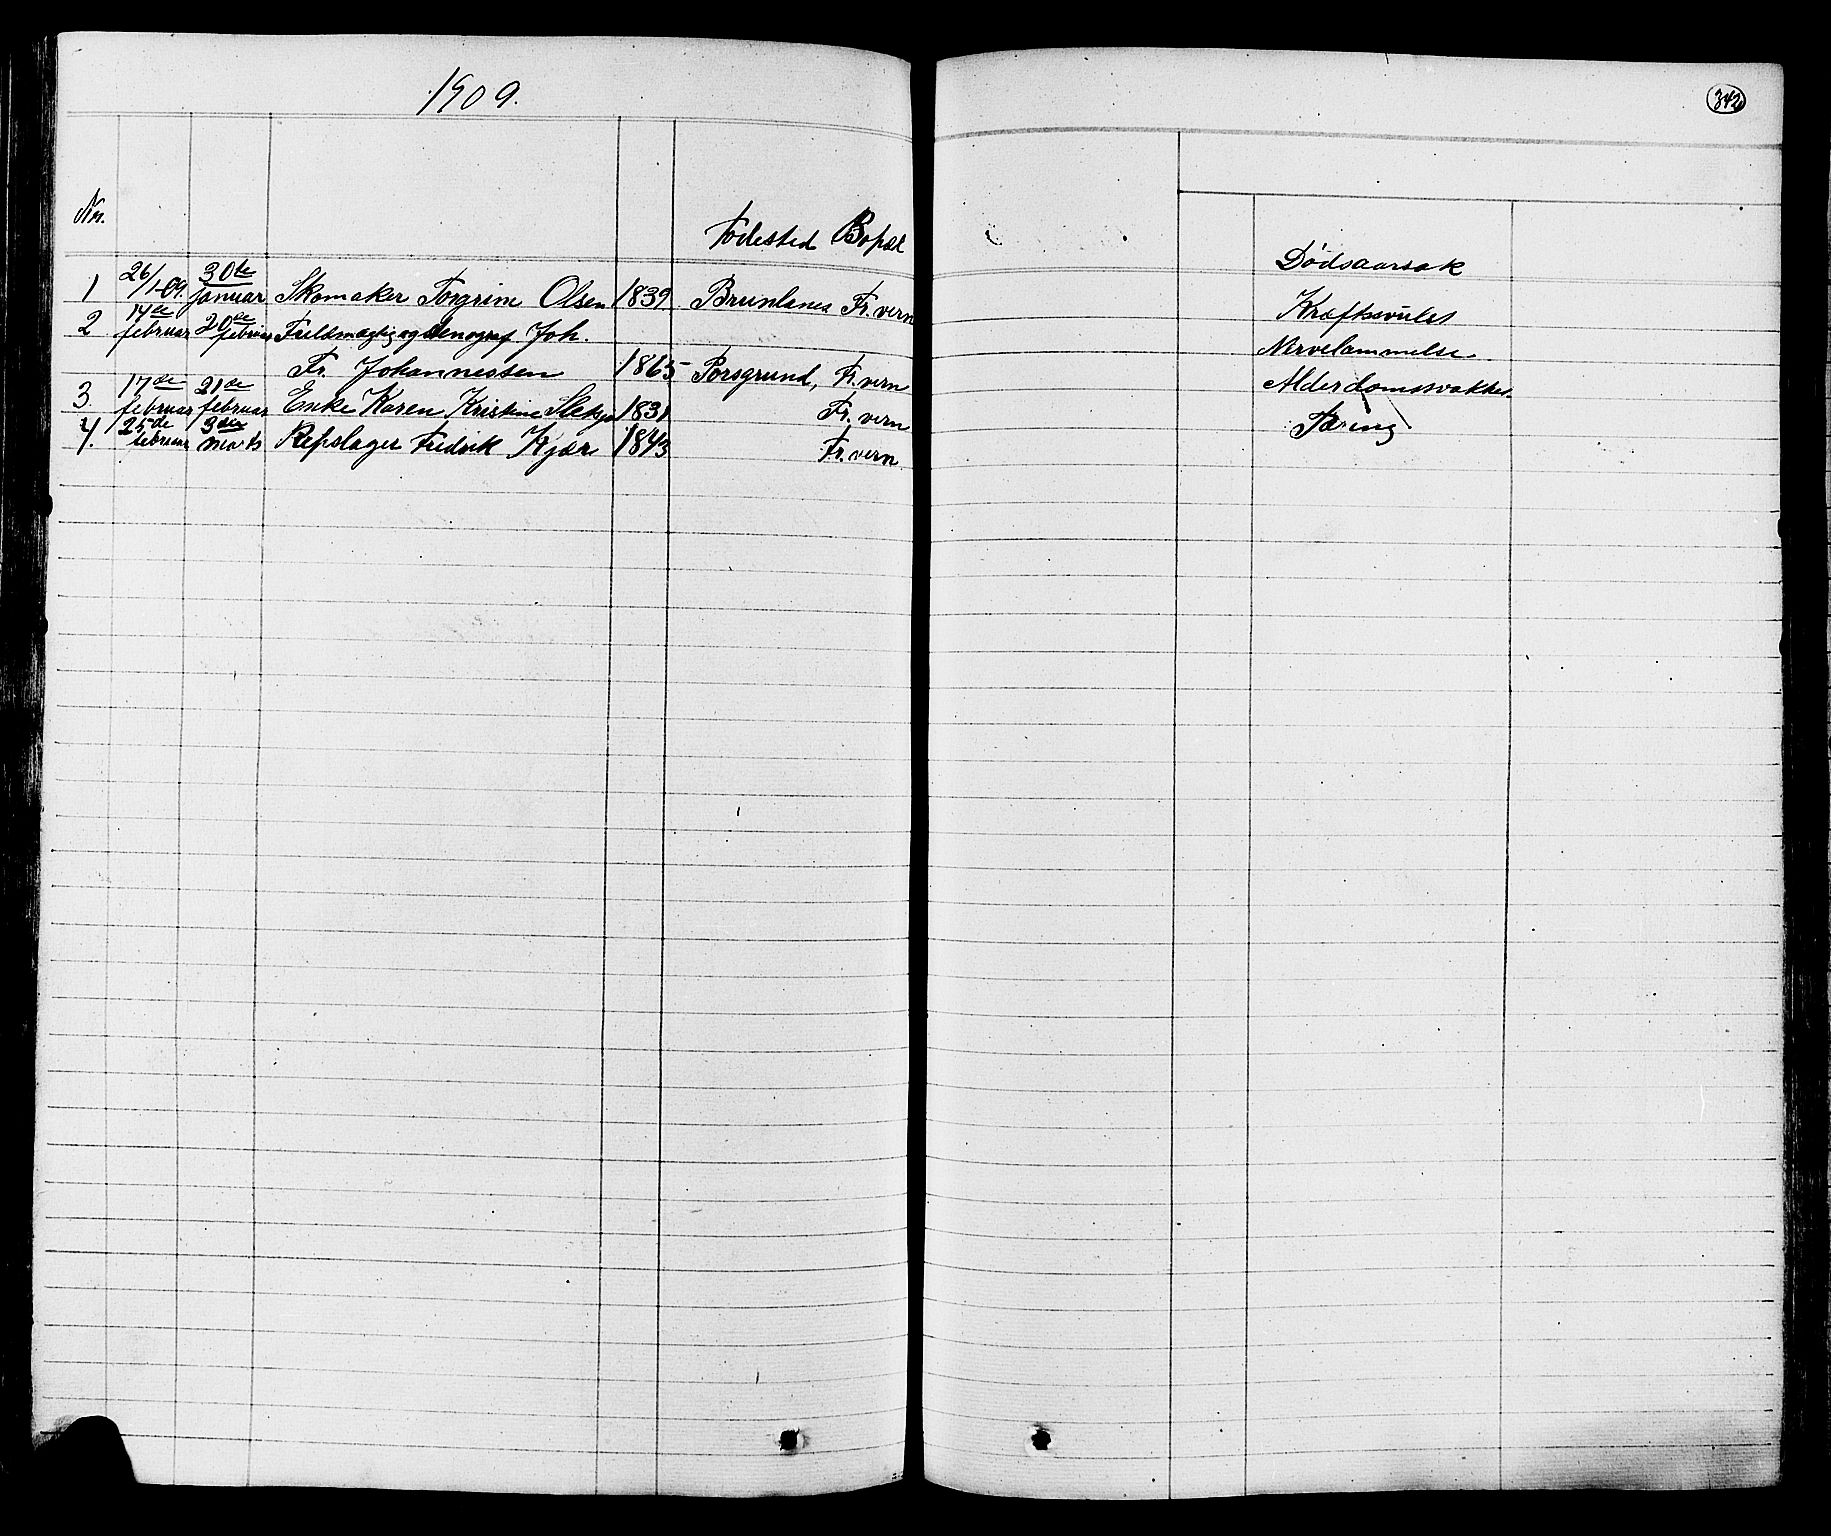 1909.
342
No.
Fødested Bopæl
Dødsaarsak
1 26/1-09. 30te januar Skomaker Torgrim Olsen 1839. Brunlanes Fr.vern Kræftsvulst
2 14de februar 20de februar Fuldmægtig og stenograf Joh.
Fr. Johannessen 1865 Porsgrund, Fr.vern Nervelammelse
3. 17de februar 21de februar Enke Karen Kristine 1831 Fr. vern Alderdomssvakhet
4. 25de februar 3die marts Repslager Fredrik Kjær 1843 Fr. vern Tæring